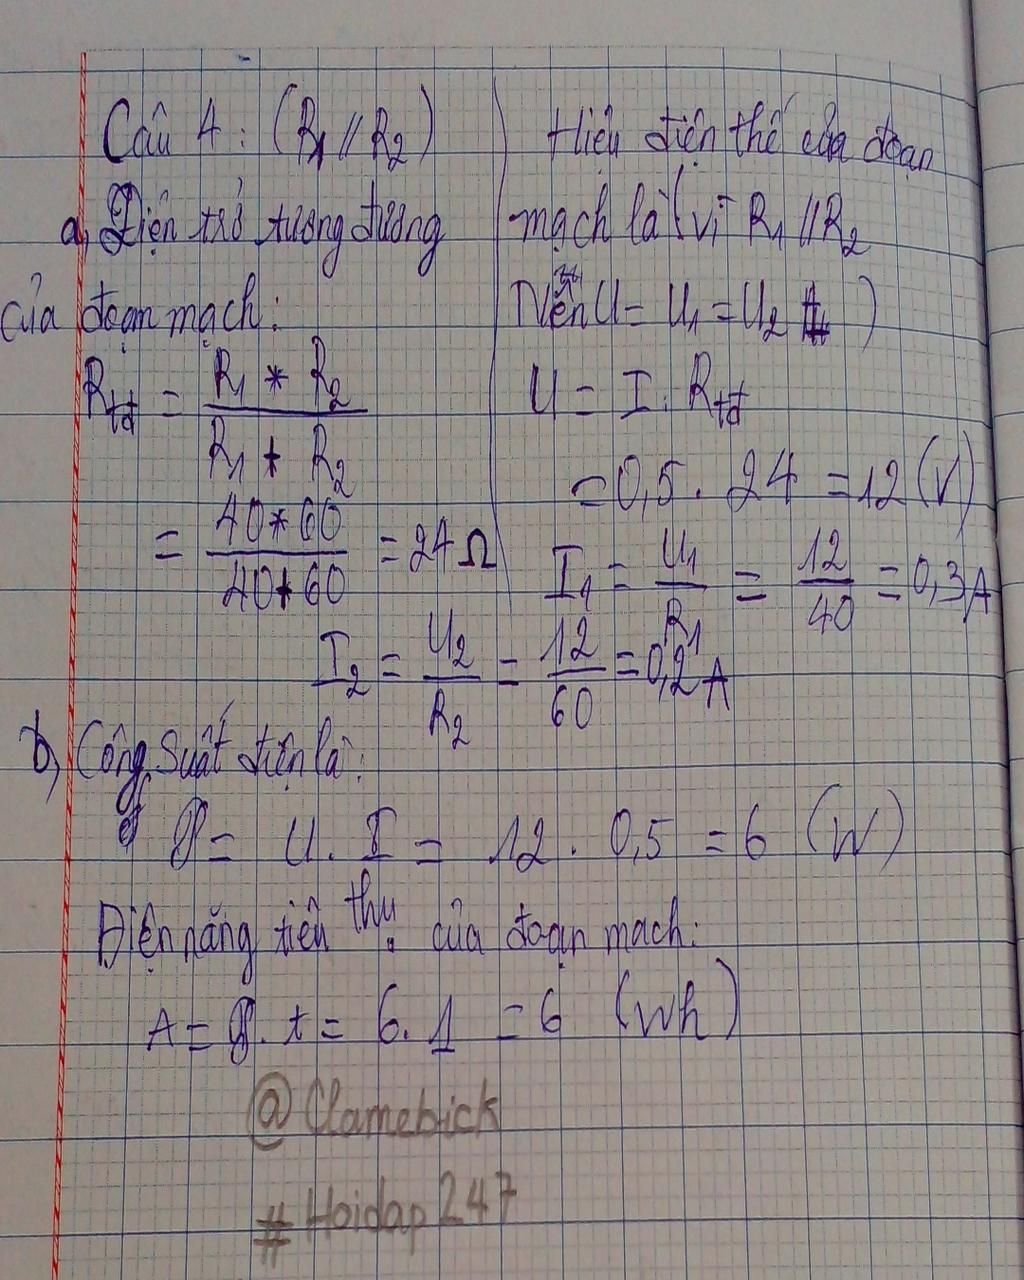 Câu 4: (R1 // R2)
a, Điện trở tương đương
của đoạn mạch:
Rtđ = R1 * R2 / R1 + R2
= 40*60 / 40+60 = 24 Ω
Hiệu điện thế của đoạn
mạch là (vì R1 // R2
Nên U = U1 = U2 )
U = I . Rtđ
= 0,5 . 24 = 12 (V)
I1 = U1 / R1 = 12 / 40 = 0,3 A
I2 = U2 / R2 = 12 / 60 = 0,2 A
b, Công suất điện là:
P = U . I = 12 . 0,5 = 6 (W)
Điện năng tiêu thụ của đoạn mạch:
A = P . t = 6 . 1 = 6 (Wh)
@Clamebick
#Hoidap247